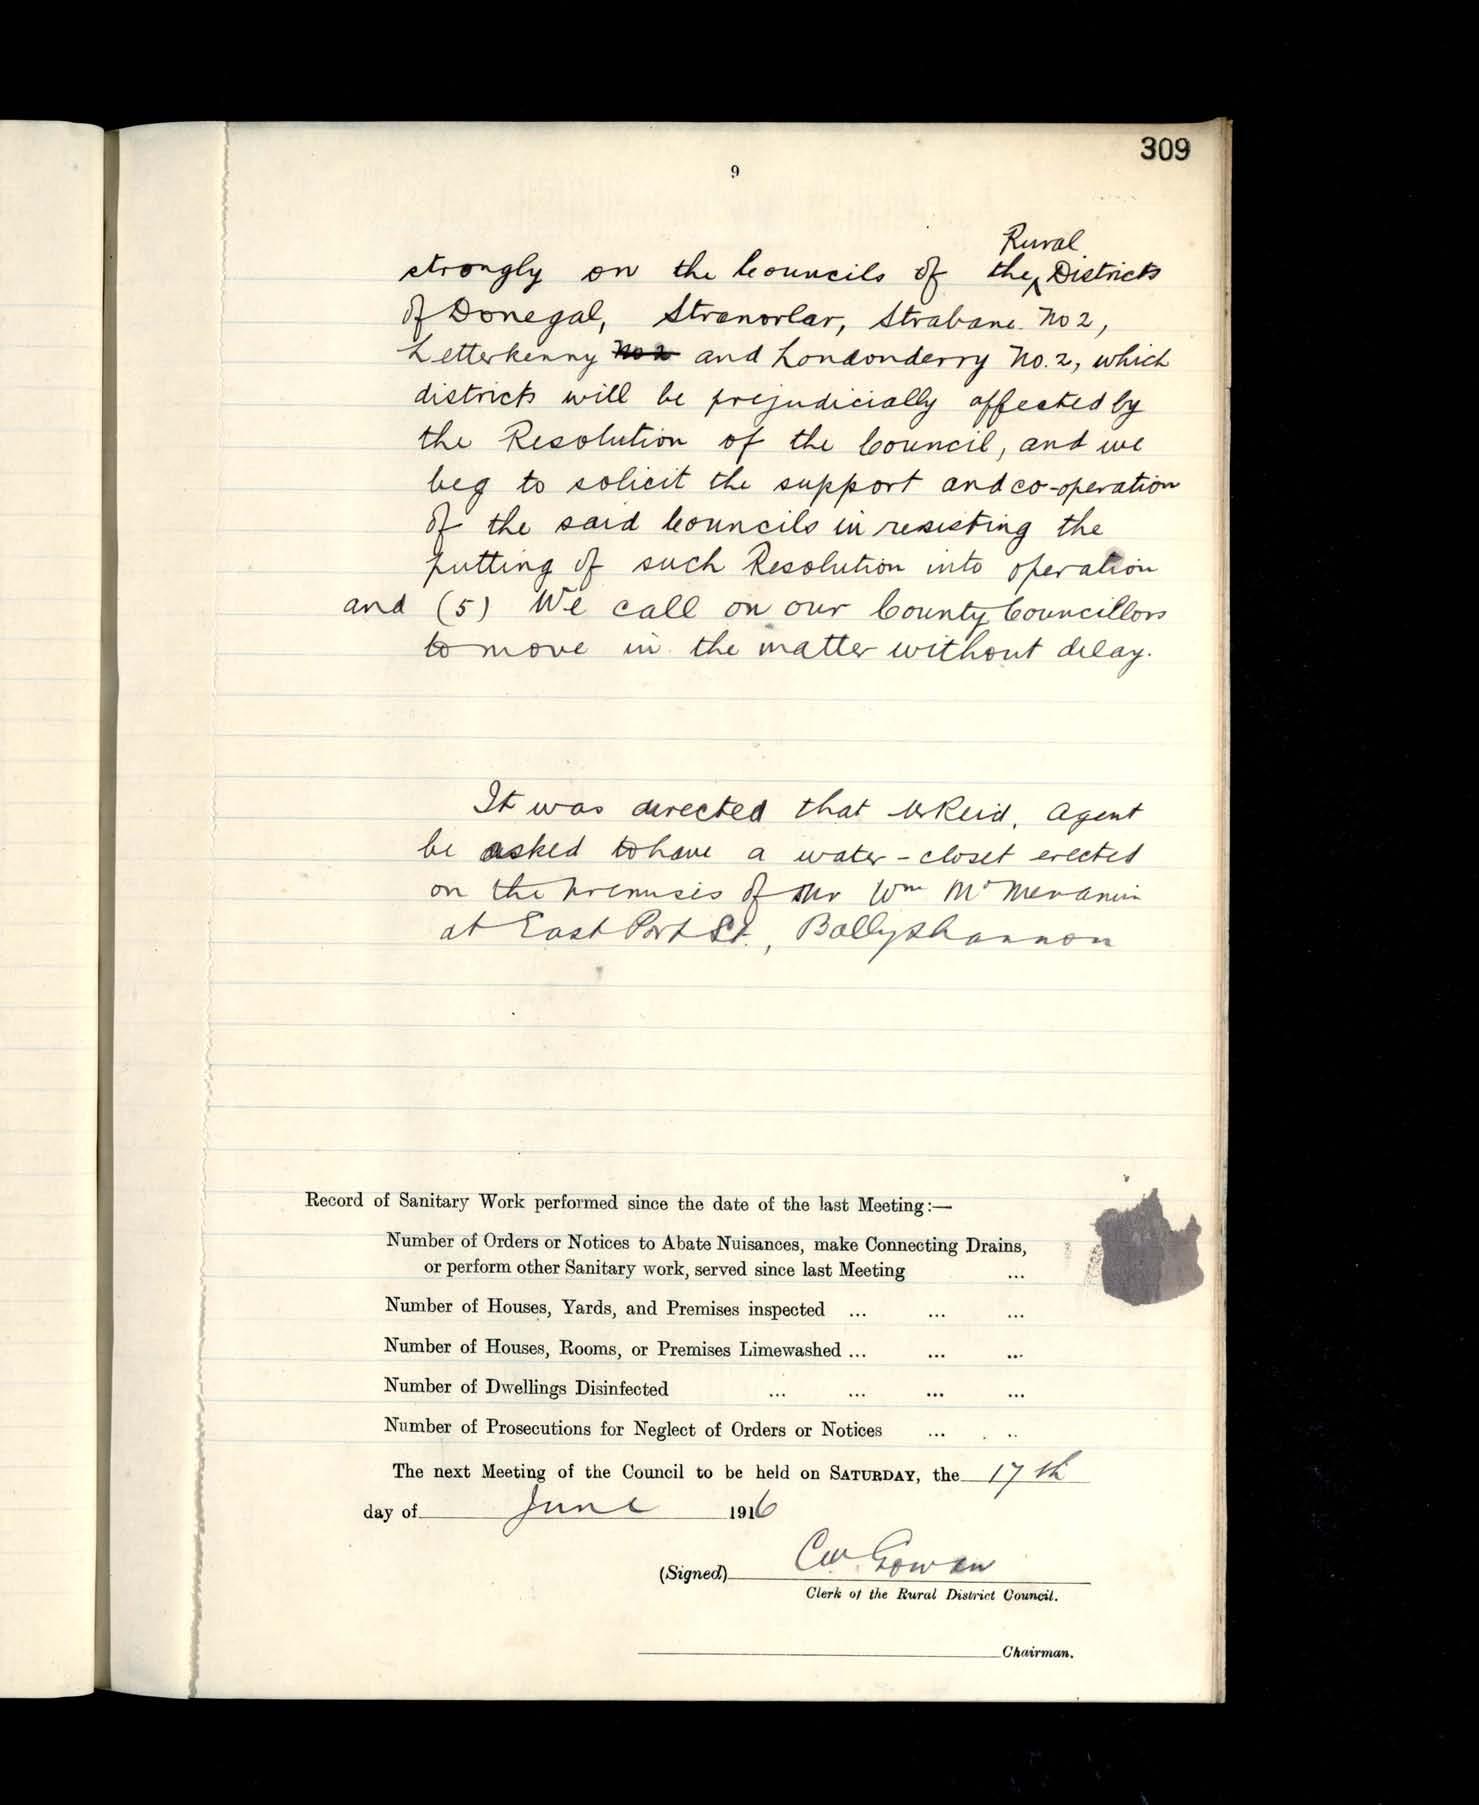 309
9
strongly on the Councils of the Rural Districts
of Donegal, Stranorlar, Strabane No 2,
Letterkenny No 2 and Londonderry No. 2, which
districts will be prejudicially affected by
the Resolution of the Council, and we
beg to solicit the support and co-operation
of the said Councils in resisting the
putting of such Resolution into operation
and (5) We call on our County Councillors
to move in the matter without delay.
It was directed that Mr Reid, Agent
be asked to have a water-closet erected
on the premises of Mr Wm
at East Port St., Ballyshannon
Record of Sanitary Work performed since the date of the last Meeting:—
Number of Orders or Notices to Abate Nuisances, make Connecting Drains,
or perform other Sanitary work, served since last Meeting ...
Number of Houses, Yards, and Premises inspected ... ... ...
Number of Houses, Rooms, or Premises Limewashed ... ... ...
Number of Dwellings Disinfected ... ... ... ...
Number of Prosecutions for Neglect of Orders or Notices ... ...
The next Meeting of the Council to be held on SATURDAY, the 17th
day of June 1916
(Signed) Gowan
Clerk of the Rural District Council.
Chairman.